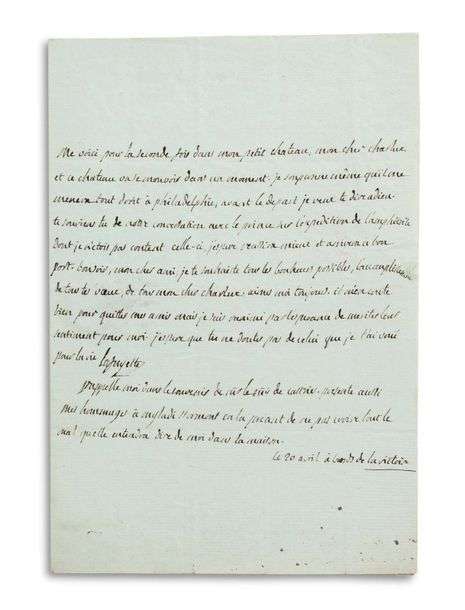 Me voici pour la seconde fois dans mon petit chateau, mon cher charlus
et ce chateau va se mouvoir dans un moment. je soupconne même quil me
menera tout droit à philadelphie, avant le depart je veux te dire adieu
te souviens tu de notre conversation avec le prince sur l'expedition de
dont je n'etois pas content celle-ci, j'espere reussira mieux et arrivera à bon
port. bonsoir, mon cher ami, je te souhaite tous les bonheurs possibles, l'accomplissement
de tous tes vœux, de tous mon cher charlus. aimes moi toujours. il m'en coute
bien pour quitter mes amis mais je suis ranimé par l'esperance de meriter leur
sentiment pour moi. j'espere que tu ne doutes pas de celui que je t'ai voué
pour la vie Lafayette
rappelle moi dans le souvenir de de castries. presente aussi
mes hommages à en la priant de ne pas croire tout le
mal quelle entendra dire de moi dans la maison.
le 20 avril à bord de la victoire